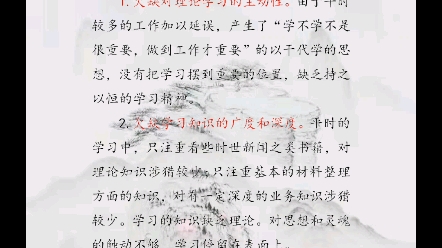 1.欠缺对理论学习的主动性。由于平时
较多的工作加以延误，产生了“学不学不是
很重要，做到工作才重要”的以干代学的思
想，没有把学习摆到重要的位置，缺乏持之
以恒的学习精神。
2.欠缺学习知识的广度和深度。平时的
学习中，只注重看些时世新闻之类书籍，对
理论知识涉猎较少；只注重基本的材料整理
方面的知识，对有一定深度的业务知识涉猎
较少。学习的知识缺乏理论。对思想和灵魂
的触动不够，学习停留在表面上。